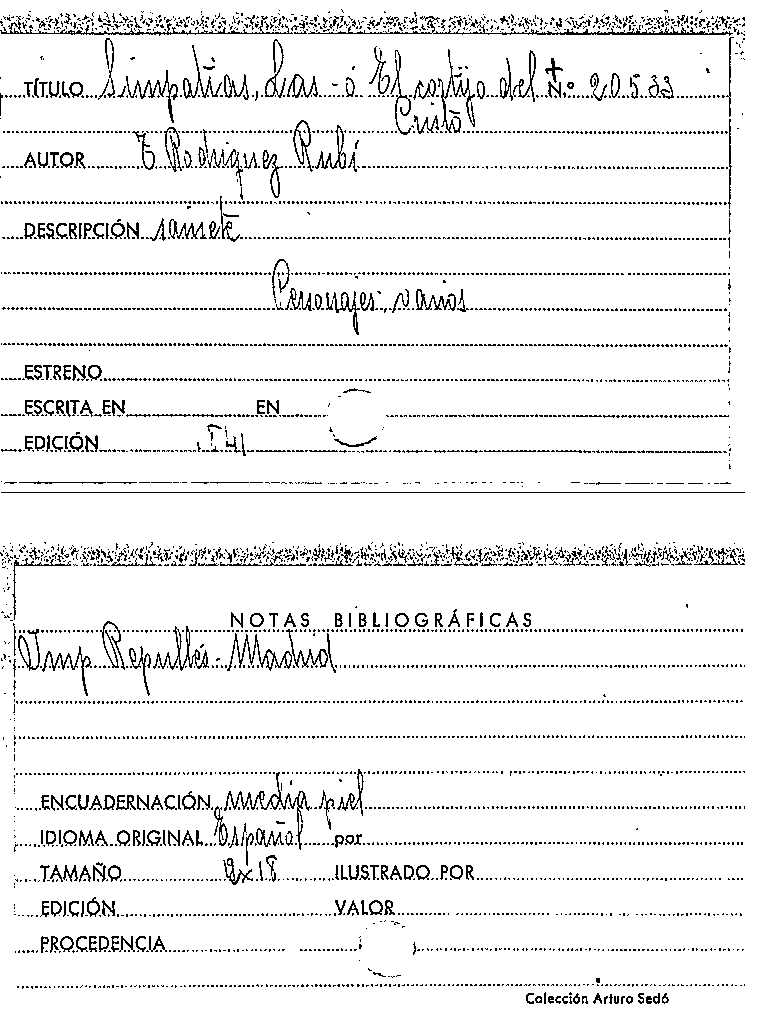 TÍTULO Simpatías, Las - ó El cortijo del N.º 20533
Cristo
AUTOR T Rodriguez Rubí
DESCRIPCIÓN sainete
Personajes, varios
ESTRENO
ESCRITA EN EN
EDICIÓN
NOTAS BIBLIOGRÁFICAS
Imp Repullés - Madrid
ENCUADERNACIÓN media piel
IDIOMA ORIGINAL Español por
TAMAÑO ILUSTRADO POR
EDICIÓN VALOR
PROCEDENCIA
Colección Arturo Sedó